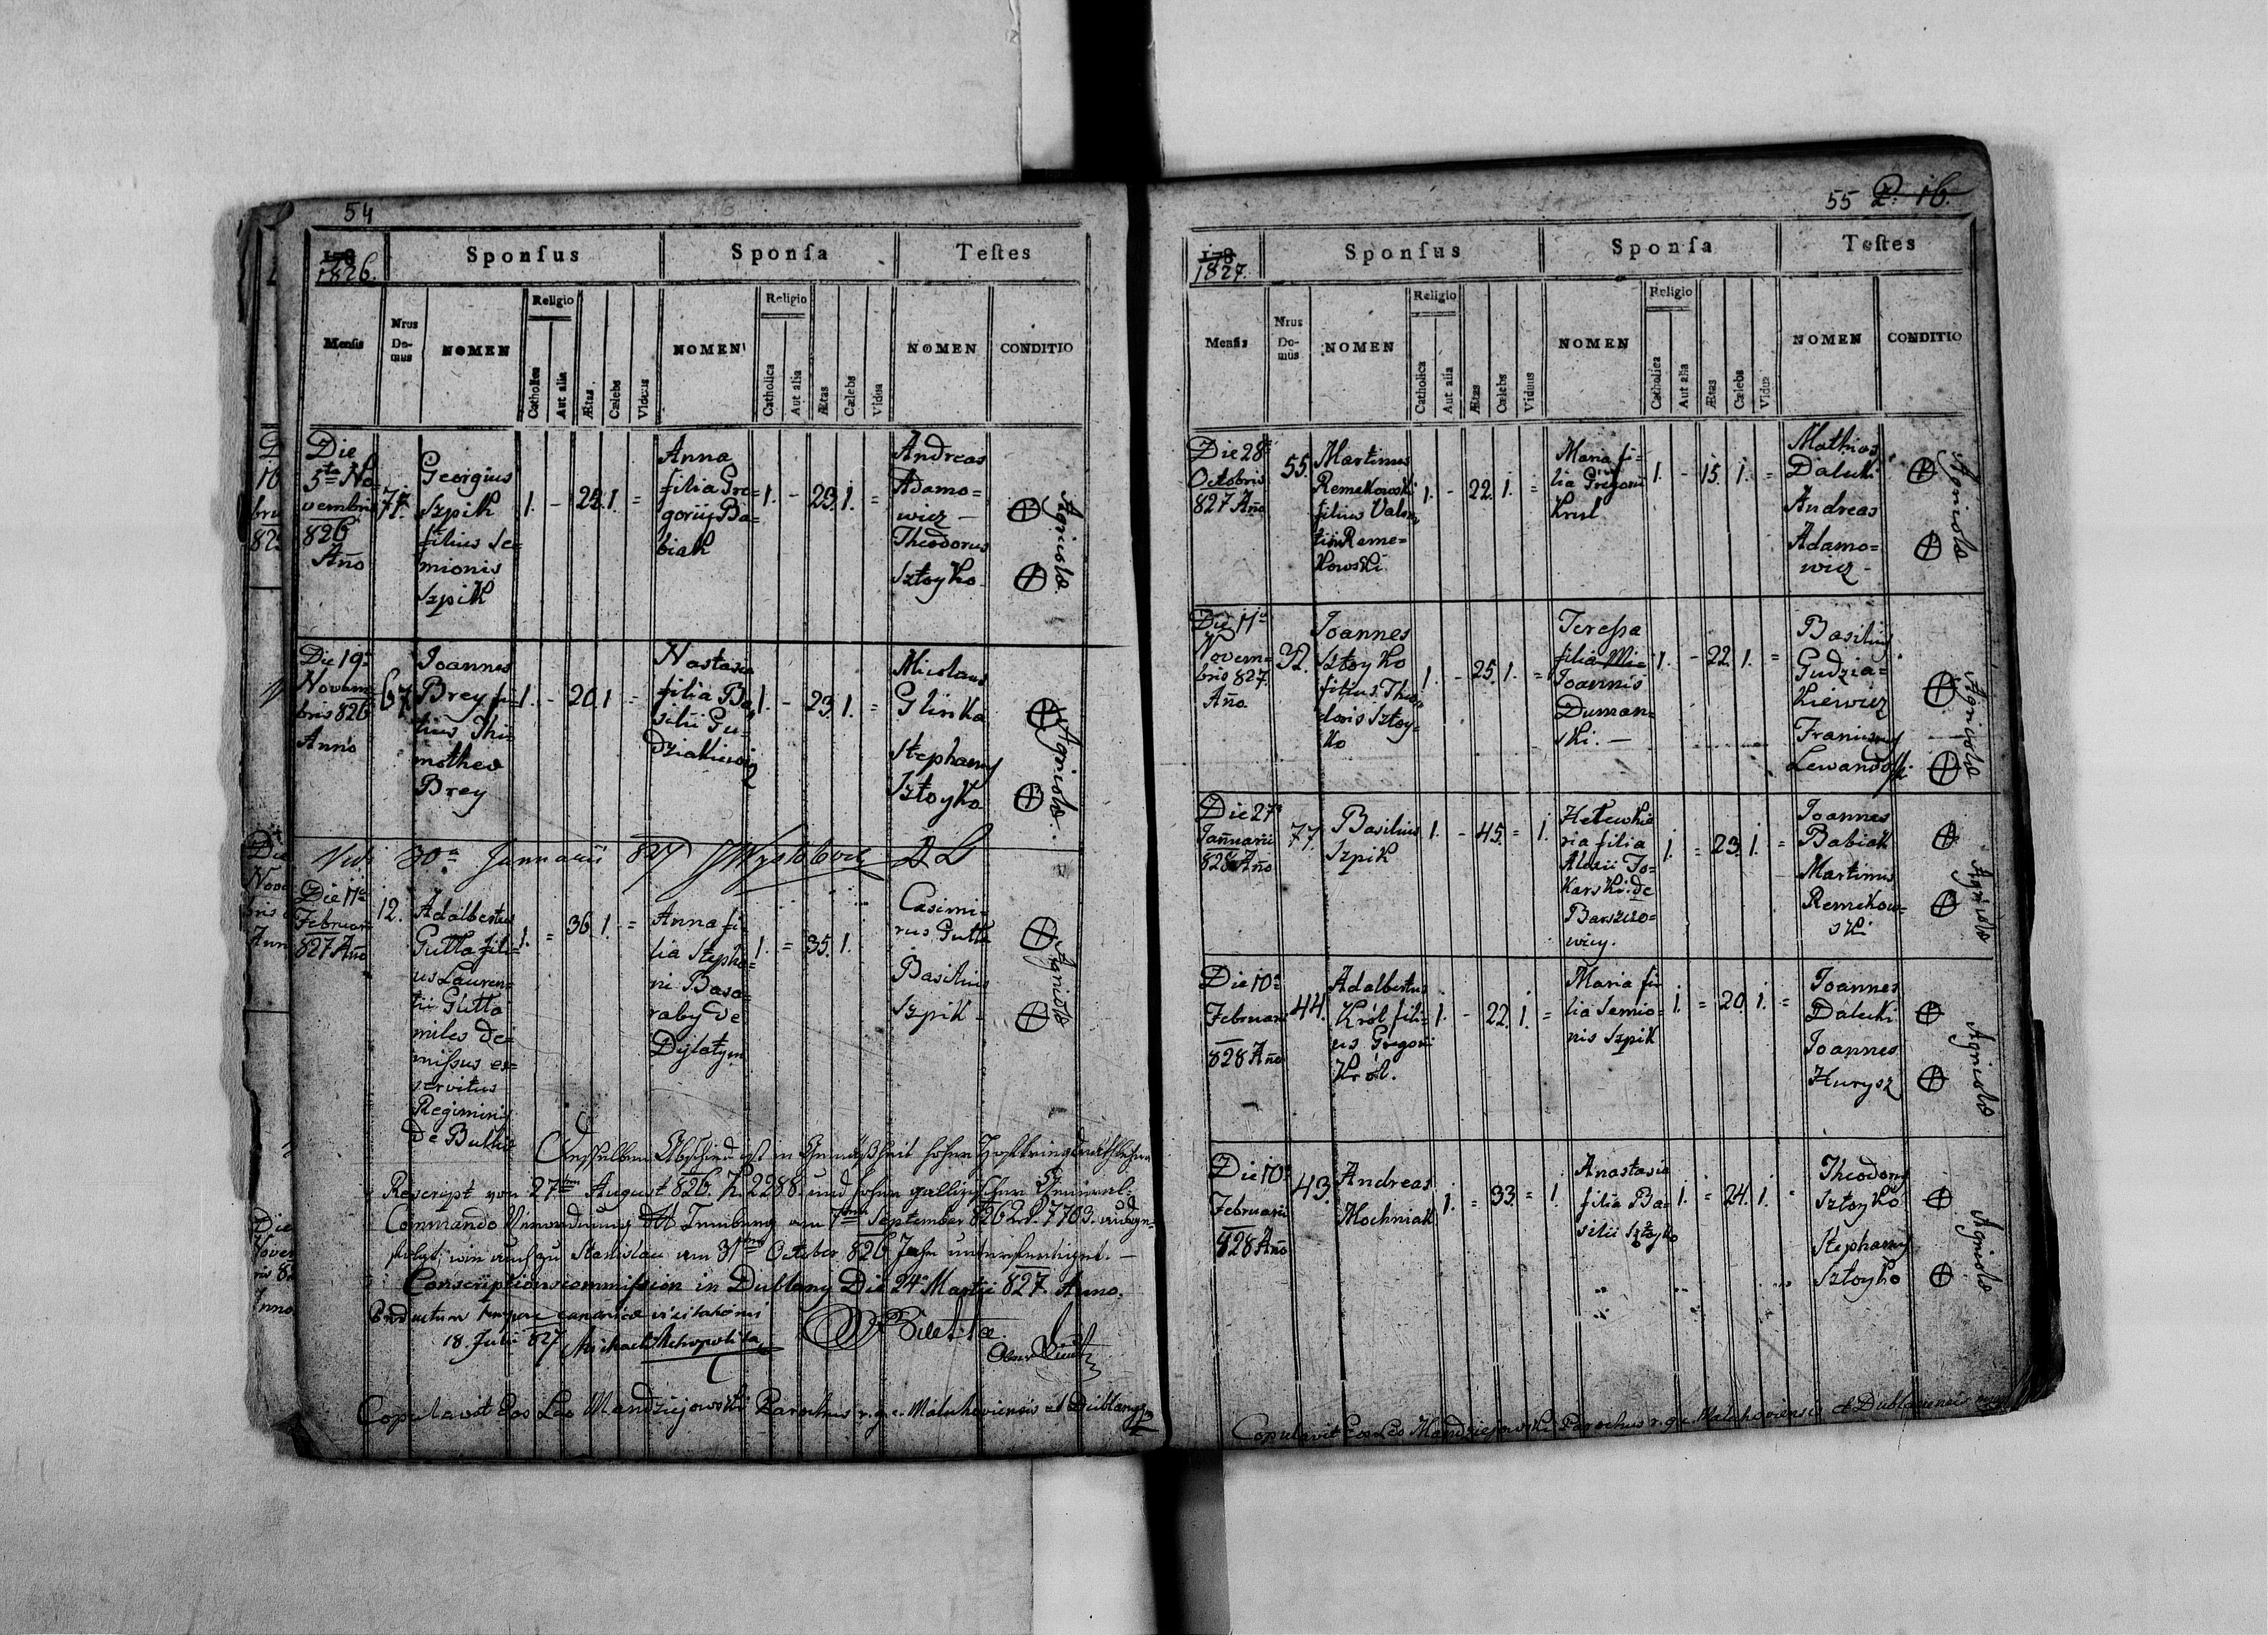 54
178
1826.
Sponsus
Sponsa
Testes
Mensis
Nrus Domus
NOMEN
Religio
Catholica
Aut alia
Ætas
Cælebs
Viduus
NOMEN
Religio
Catholica
Aut alia
Ætas
Cælebs
Vidua
NOMEN
CONDITIO
Die
5ta No=
vembris
826
Año
77.
Georgius
Szpik
filius Se=
mionis
Szpik
1. - 22. 1. =
Anna
filia Gre=
gorii Ba=
biak
1. - 23. 1. =
Andreas
Adamo=
wicz -
Theodorus
Sztoyko.
Agricolæ
Die 19a
Novem=
bris 826
Anno
67
Joannes
Brey fi=
lius Thi=
motheo
Brey
1. - 20. 1 =
Nastasia
filia Ba=
silii Gu=
dziakiewicz
1. - 23. 1. =
Glinka
Stephanus
Sztoyko
Agricolæ.
30a Januarii 827
Die 11a
Februarii
827 Año
12.
Adalbertus
Gutta fili=
us Lauren=
tii Gutta
miles di=
missus ex
servitus
Regiminis
de
1. = 36. 1. =
Anna fi=
lia Stepha=
ni Basa=
raby de
Dylatyn
1. = 35. 1.
Casimi=
rus Gutta
Basilius
Szpik -
Agricolæ
Rescript vom 27ten August 826. 2288. und hohen gallizischen General=
Commando Verordnung am 7ten September 826
Stanislau am 31ten October 826
Conscriptionscommission in Dublany Die 24a Martii 827. Anno.
Productum tempore canonicæ visitationis
18. Julii 827 Michael Metropolita
Copulavit Eos Leo Mandziejowski Parochus r. g. c. Maluhoviensis et Dublany
55
178
1827.
Sponsus
Sponsa
Testes
Mensis
Nrus Domus
NOMEN
Religio
Catholica
Aut alia
Ætas
Cælebs
Viduus
NOMEN
Religio
Catholica
Aut alia
Ætas
Cælebs
Vidua
NOMEN
CONDITIO
Die 28a
Octobris
827 Año
55.
Martinus
Remekowski
filius Valen
tini Reme=
kowski
1. - 22. 1. =
Maria fi=
lia Gregorii
Krul
1. - 15. 1. =
Mathias
Daluki
Andreas
Adamo=
wicz -
Agricolæ
Die 11a
Novem=
bris 827.
Año.
32.
Joannes
Sztoyko
filius Theo
doris Sztoy=
ko
1. - 25. 1. =
Teressa
filia
Joannis
Duman=
ski. -
1. - 22. 1. =
Basilius
Gudzia=
kiewicz
Lewandoski
Agricolæ
Die 27a
Januarii
828 Año
77.
Basilius
Szpik
1. - 45. = 1.
ria filia
Alexii To=
karski de
Barszczo=
wicy.
1. = 23. 1. =
Joannes
Babiak
Martinus
Remekow=
ski
Agricolæ
Die 10a
Februarii
828 Año
44.
Adalbertus
Król fili=
us Gregorii
Król.
1. - 22. 1. =
Maria fi
lia Semio=
nis Szpik
1. = 20. 1. =
Joannes
Daluki
Joannes
Hurysz
Agricolæ
Die 10a
Februarii
828 Año
43.
Andreas
Mochniak
1. = 33. = 1.
Anastasia
filia Ba=
silii Sztoyko
1. = 24. 1.
Theodorus
Sztoyko
Stephanus
Sztoyko
Agricolæ
Copulavit Eos Leo Mandziejowski Parochus r. g. c. Maluhoviensis et Dublanensis